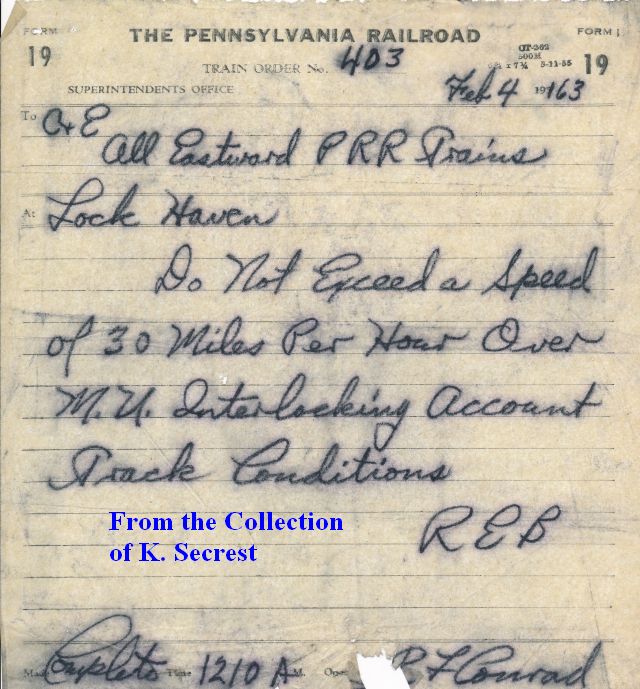 FORM 19
THE PENNSYLVANIA RAILROAD
FORM 19
TRAIN ORDER No. 403
CT-262
500M
x 7¾ 5-11-55
SUPERINTENDENTS OFFICE
Feb 4 19163
To C+E
All Eastward PRR Trains
At Lock Haven
Do Not Exceed a Speed
of 30 Miles Per Hour Over
M.U. Interlocking Account
Track Conditions
REB
From the Collection
of K. Secrest
Made Complete Time 1210 A M. Opr R F Conrad